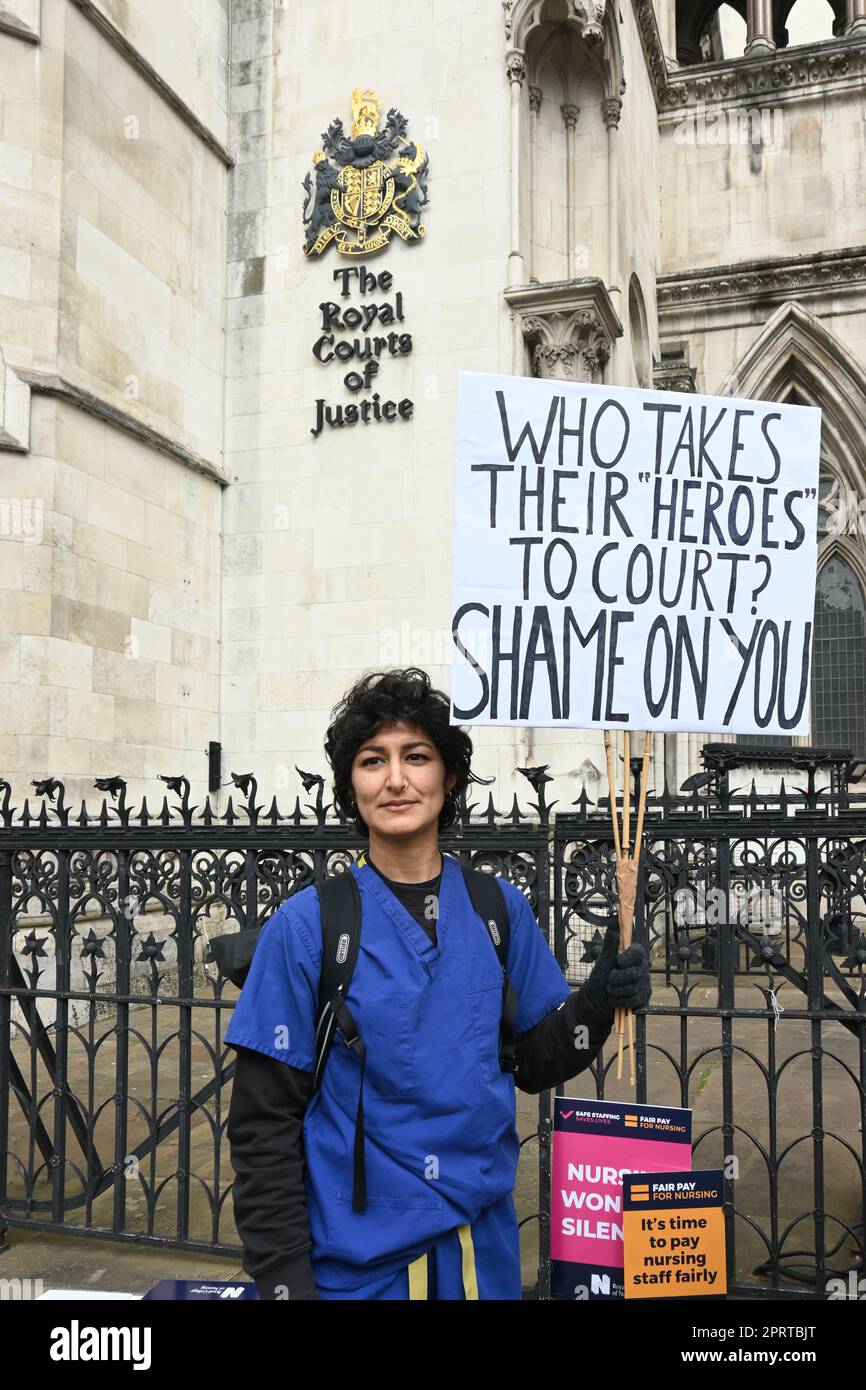 DIEU ET MON DROIT
The
Royal
Courts
of
Justice
WHO TAKES
THEIR "HEROES"
TO COURT?
SHAME ON YOU
SAFE STAFFING
SAVES LIVES
FAIR PAY
FOR NURSING
NURSI
WON
SILEN
FAIR PAY
FOR NURSING
It's time
to pay
nursing
staff fairly
Royal
of N
alamy
Image ID: 2PRTBJT
www.alamy.com